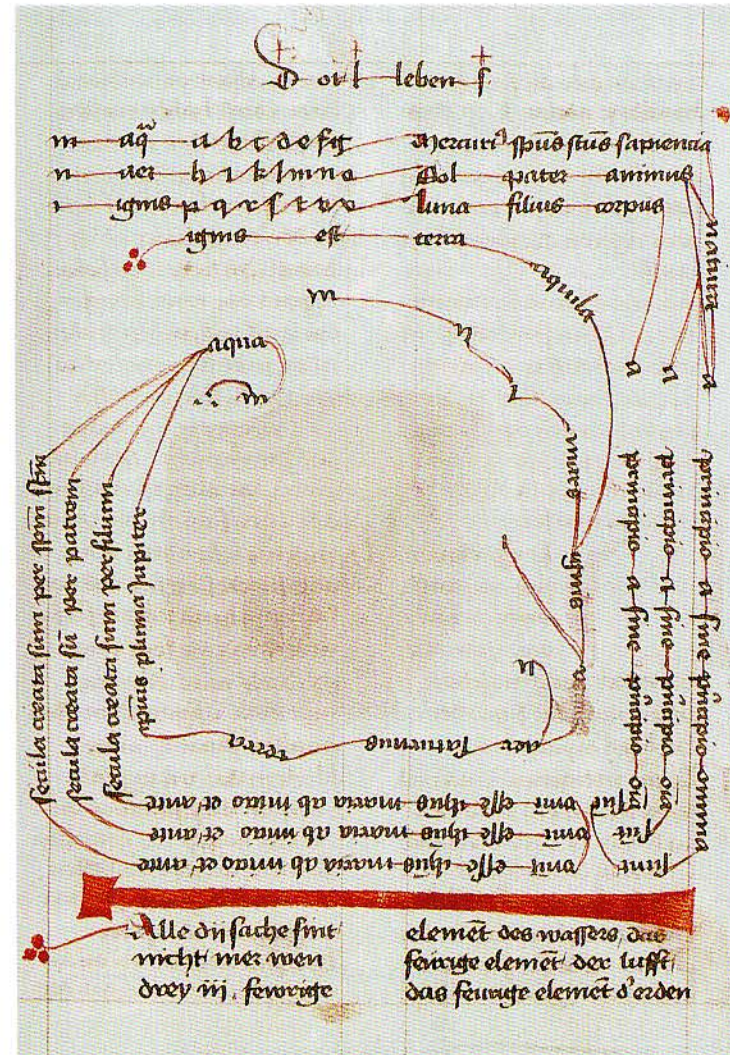 Sol leben s
m aq̃ a b c d e f g Mercuri⁹ sp̃us st̃us sapiencia
n aer h i k l m n o Sol pater animus
i ignis p q r s t v x luna filius corpus
ignis est terra
aquila
natura
m n i mars ignis
aqua
m
a
a
a
principio a sine principio omnia
principio a sine principio om̃a
principio a sine principio om̃a
secula creata sunt per sp̃m st̃m
secula creata sũt per patrem
secula creata sunt per filium
ip̃ius pluma jupiter
terra saturnus aer
n
i
sunt omĩ esse ih̃us maria ab inicio et ante
sũt omĩ esse ih̃us maria ab inicio et ante
sunt omĩ esse ih̃us maria ab inicio et ante
Alle dij sache sint
nicht mer wen
drey iij. fewrige
elemẽt des wassers, das
fewrige elemẽt der lufft,
das fewrige elemẽt d'erden